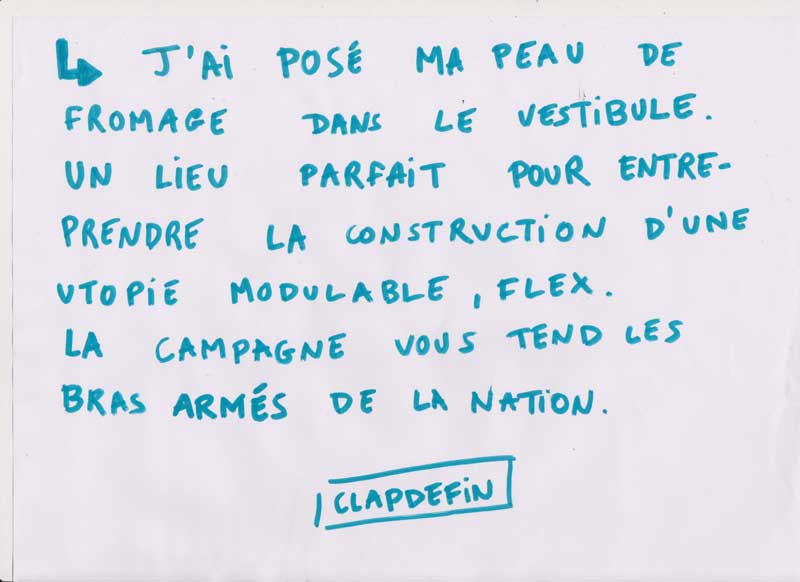 ↳ J'Ai POSÉ MA PEAU DE
FROMAGE DANS LE VESTiBULE.
UN LiEU PARFAiT POUR ENTRE-
PRENDRE LA CONSTRUCTiON D'UNE
UTOPiE MODULABLE, FLEX.
LA CAMPAGNE VOUS TEND LES
BRAS ARMÉS DE LA NATiON.
CLAPDEFiN